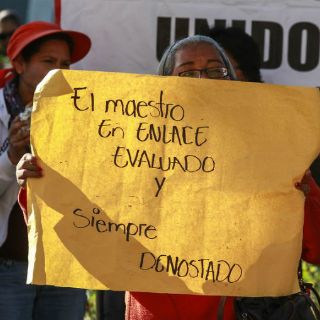 UNIDO
El maestro
En ENLACE
EVALUADO
Y
Siempre
DGNOSTADO